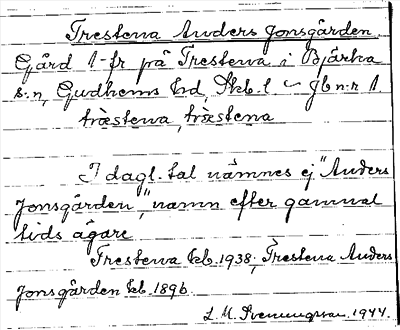 Trestena Anders Jonsgården.
Gård 1-fr på Trestena i Bjärka
s:n, Gudhems hd, Skb. l. ~ Jb n:r 1.
træstena, træstena
I dagl. tal nämnes ej "Anders
Jonsgården", namn efter gammal
tids ägare
Trestena Eeb. 1938; Trestena Anders
Jonsgården Eeb. 1896.
L. M. Svenungsson 1944.